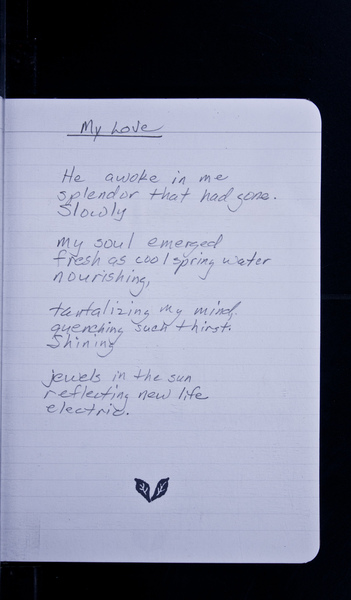 My Love
He awoke in me
splendor that had gone.
Slowly
my soul emerged
fresh as cool spring water
nourishing,
tantalizing my mind,
quenching such thirst.
Shining
jewels in the sun
reflecting new life
electric.